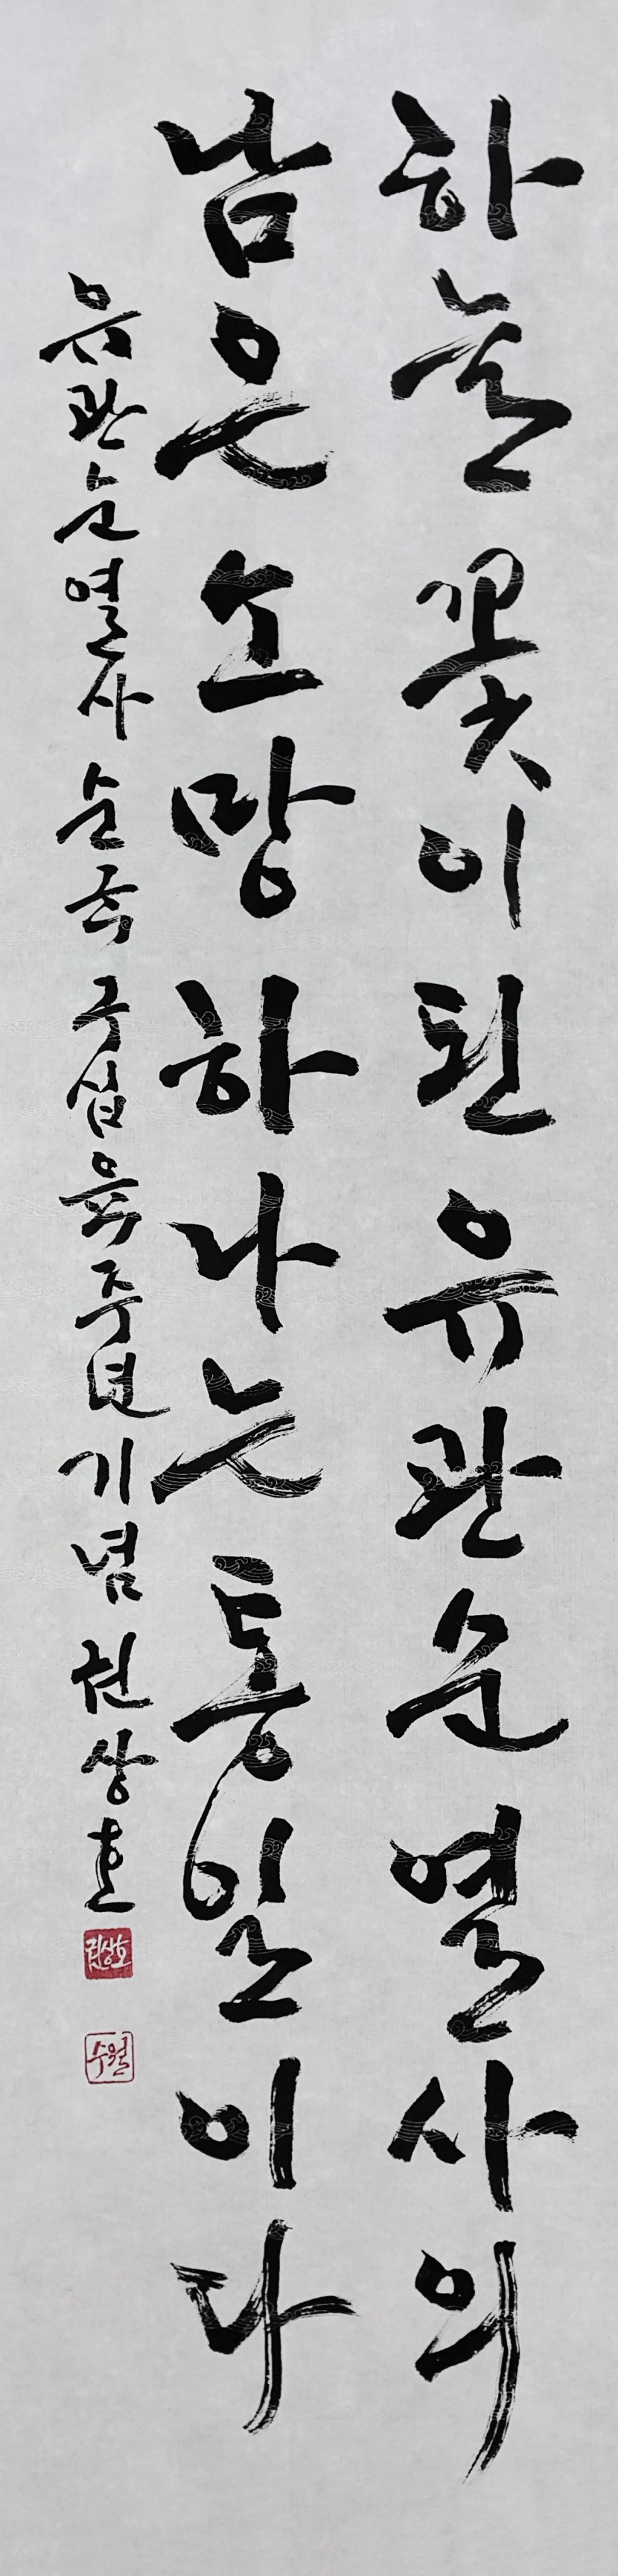 하늘 꽃이 된 유관순 열사의
남은 소망 하나는 통일이다
유관순 열사 순국 구십육주년 기념 권상호
권상호
수월